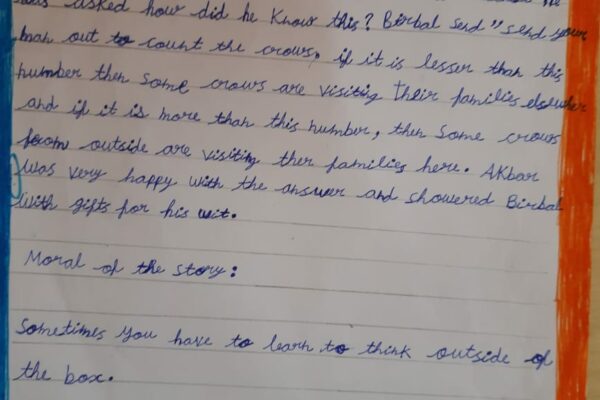 was asked how did he Know this? Birbal send "send your
man out to count the crows, if it is lesser than this
number then some crows are visiting their families elsewher
and if it is more than this number, then some crows
from outside are visiting ther families here. AKbar
was very happy with the answer and showered Birbal
with gifts for his wit.
Moral of the story:
Sometimes you have to learn to think outside of
the box.